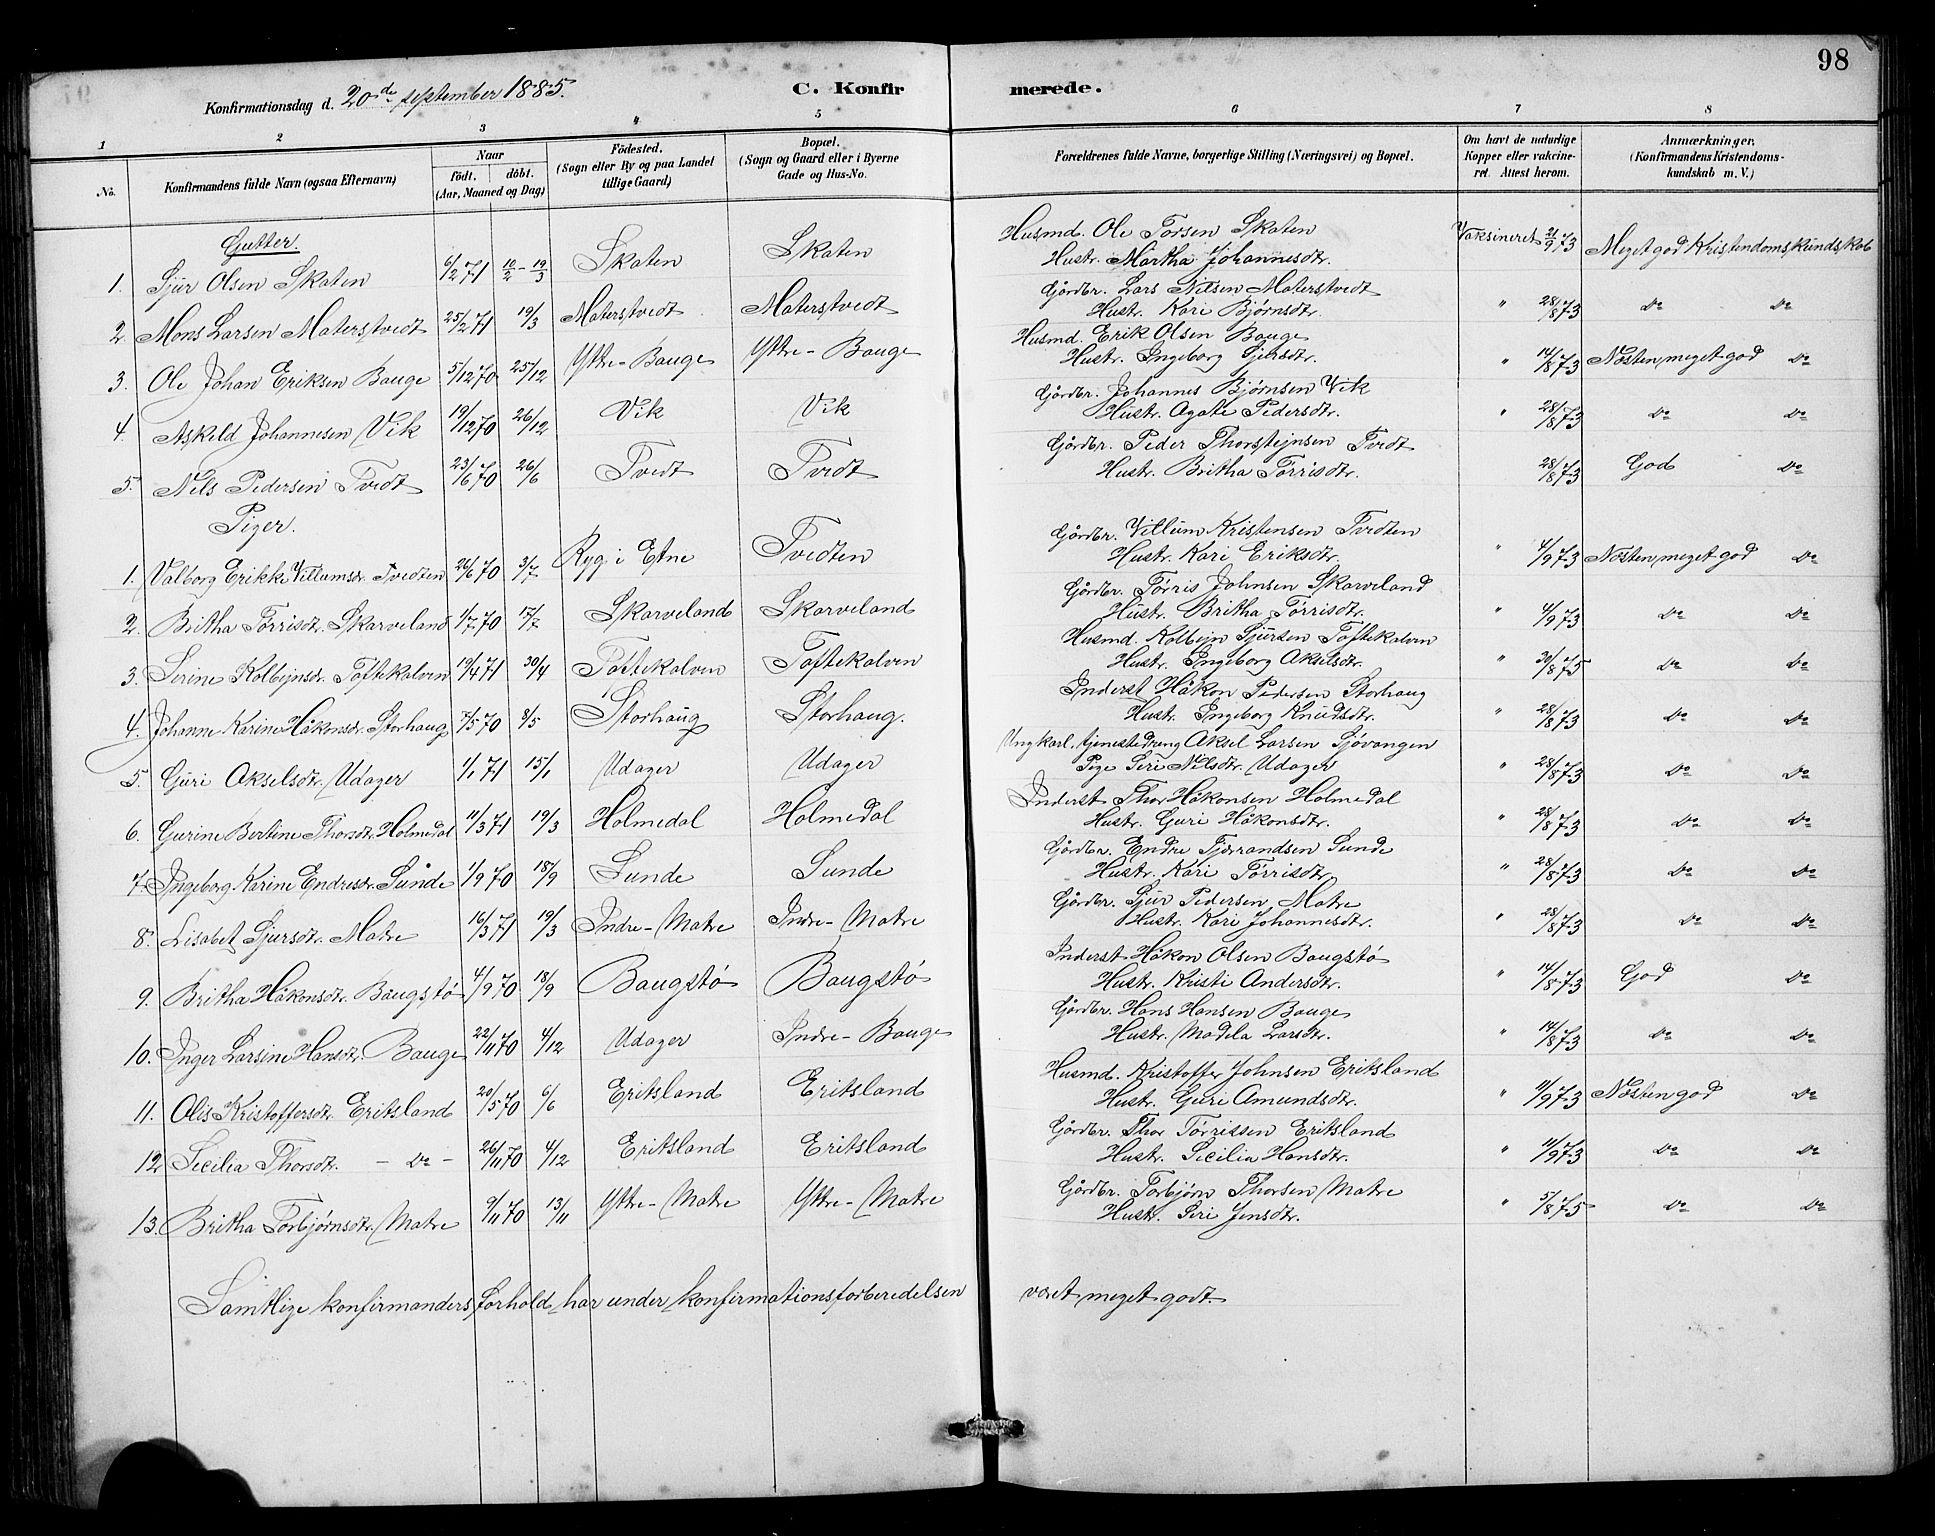 98
Konfirmationsdag d. 20de september 1885.
C. Konfir merede.
1 2 3 4 5 6 7 8
No.
Konfirmandens fulde Navn (ogsaa Efternavn)
Naar
födt. döbt.
(Aar, Maaned og Dag)
Födested.
(Sogn eller By og paa Landet
tillige Gaard)
Bopæl.
(Sogn og Gaard eller i Byerne
Gade og Hus-No.
Forældrenes fulde Navne, borgerlige Stilling (Næringsvei) og Bopæl.
Om havt de naturlige
Kopper eller vakcine-
ret. Attest herom.
Anmærkninger.
(Konfirmandens Kristendoms-
kundskab m. V.)
Gutter.
Husmd. Ole Torsen Skaten
1. Sjur Olsen Skaten 6/2 71 10/2 - 19/3 Skaten Skaten Hustr. Martha Johannesdtr. Vaksineret 21/9 73 Meget god Kristendomskundskab
Gårdbr. Lars Nilsen Materstvedt
2. Mons Larsen Materstvedt 25/2 71 19/3 Materstvedt Materstvedt Hustr. Kari Bjørnsdtr. " 28/8 73 do do
Husmd. Erik Olsen Bauge
3. Ole Johan Eriksen Bauge 5/12 70 25/12 Yttre-Bauge Yttre-Bauge Hustr. Ingeborg Jensdtr. " 14/8 73 Næsten meget god do
Gårdbr. Johannes Bjørnsen Vik
4. Askeld Johannesen Vik 19/12 70 26/12 Vik Vik Hustr. Agate Pedersdtr. " 28/8 73 do do
Gårdbr. Peder Thorstejnsen Tvedt
5. Nels Pedersen Tvedt 23/6 70 26/6 Tvedt Tvedt Hustr. Britha Tørrisdtr. 28/8 73 God do
Piger.
Gårdbr. Villum Kristensen Tvedten
1. Valborg Erikke Villumsdr. Tvedten 26/6 70 3/7 Ryg i Etne Tvedten Hustr. Kari Eriksdtr. " 4/9 73 Næsten meget god do
Gårdbr. Tørris Johnsen Skarveland
2. Britha Tørrisdtr. Skarveland 1/7 70 17/7 Skarveland Skarveland Hustr. Britha Tørrisdtr. " 4/9 73 do do
Husmd. Kolbejn Sjursen Toftekalven
3. Serine Kolbejnsdr. Toftekalven 19/4 71 30/4 Toftekalven Toftekalven Hustr. Ingeborg Akselsdtr. " 30/8 75 do do
Inderst Håkon Pedersen Storhaug
4. Johanne Karine Håkonsdr. Storhaug 5/5 70 8/5 Storhaug Storhaug. Hustr. Ingeborg Knudsdtr. " 28/8 73 do do
Ungkarl, tjenestedreng Aksel Larsen Sjøvangen
5. Guri Akselsdtr. Udager 1/1 71 15/1 Udager Udager Pige Siri Nilsdtr. Udager " 28/8 73 do do
Inderst Thor Håkonsen Holmedal
6. Gurine Bertine Thorsdtr. Holmedal 11/3 71 19/3 Holmedal Holmedal Hustr. Guri Håkonsdtr. " 28/8 73 do do
Gårdbr. Endre Tjerrandsen Sunde
7. Ingeborg Karine Endresdr. Sunde 1/9 70 18/9 Sunde Sunde Hustr. Kari Tørrisdtr. " 28/8 73 do do
Gårdbr. Sjur Pedersen Matre
8. Lisabet Sjursdtr. Matre 16/3 71 19/3 Indre-Matre Indre-Matre Hustr. Kari Johannesdtr. " 28/8 73 do do
Inderst Håkon Olsen Baugstø
9. Britha Håkonsdtr. Baugstø 4/9 70 18/9 Baugstø Baugstø Hustr. Kristi Andersdtr. " 14/8 73 God do
Gårdbr. Hans Hansen Bauge
10. Inger Larsine Hansdtr. Bauge 22/11 70 4/12 Udager Indre-Bauge Hustr. Madela Larsdtr. " 14/8 73 do do
Husmd. Kristoffer Johnsen Eritsland
11. Olis Kristoffersdtr. Eritsland 20/5 70 6/6 Eritsland Eritsland Hustr. Guri Amundsdtr. " 11/9 73 Næsten god do
Gårdbr. Thor Tørrissen Eritsland
12 Sicilia Thorsdtr. - do - 26/11 70 4/12 Eritsland Eritsland Hustr. Sicilia Hansdtr. " 11/9 73 do do
Gårdbr. Torbjørn Thorsen Matre
13. Britha Torbjørnsdtr. Matre 9/11 70 13/11 Yttre-Matre Yttre-Matre Hustr. Siri Jensdtr. " 5/8 75 do do
Samtlige konfirmanders forhold har under konfirmationsforberedelsen været meget godt.